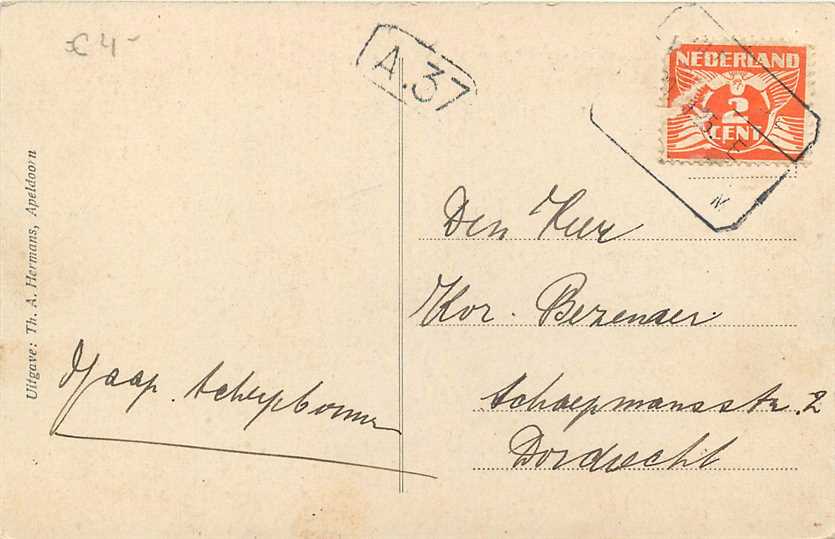 € 4-
A.37
NEDERLAND
2
CENT
Den Heer
Kor. Bezemer
Schaepmansstr. 2
Dordrecht
Jaap Scheybouwer
Uitgave: Th. A. Hermans, Apeldoorn